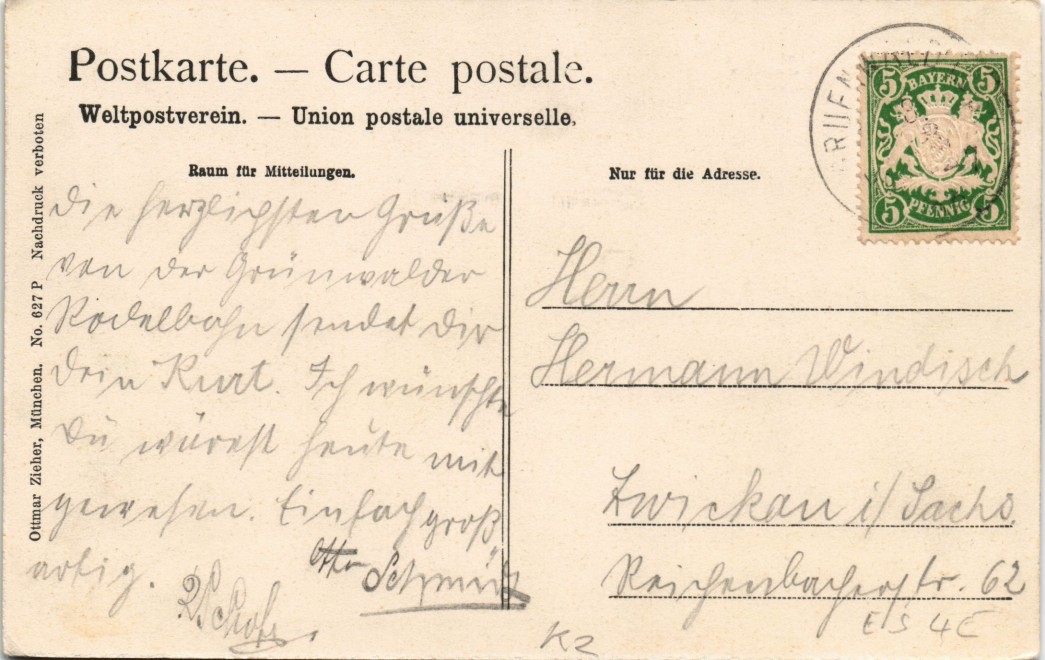 Postkarte. — Carte postale.
Weltpostverein. — Union postale universelle.
Raum für Mitteilungen.
Die herzlichsten Grüße
von der Grünwalder
Rodelbahn sendet dir
dein Kurt. Ich wünschte
du wärest heute mit
gewesen. Einfach groß
artig.
Otto
Schmidt
Ottmar Zieher, München. No. 627 P Nachdruck verboten
Nur für die Adresse.
5 5
BAYERN
PFENNIG
5 5
Herrn
Hermann Windisch
Zwickau i/Sachs.
Reichenbacherstr. 62
K2